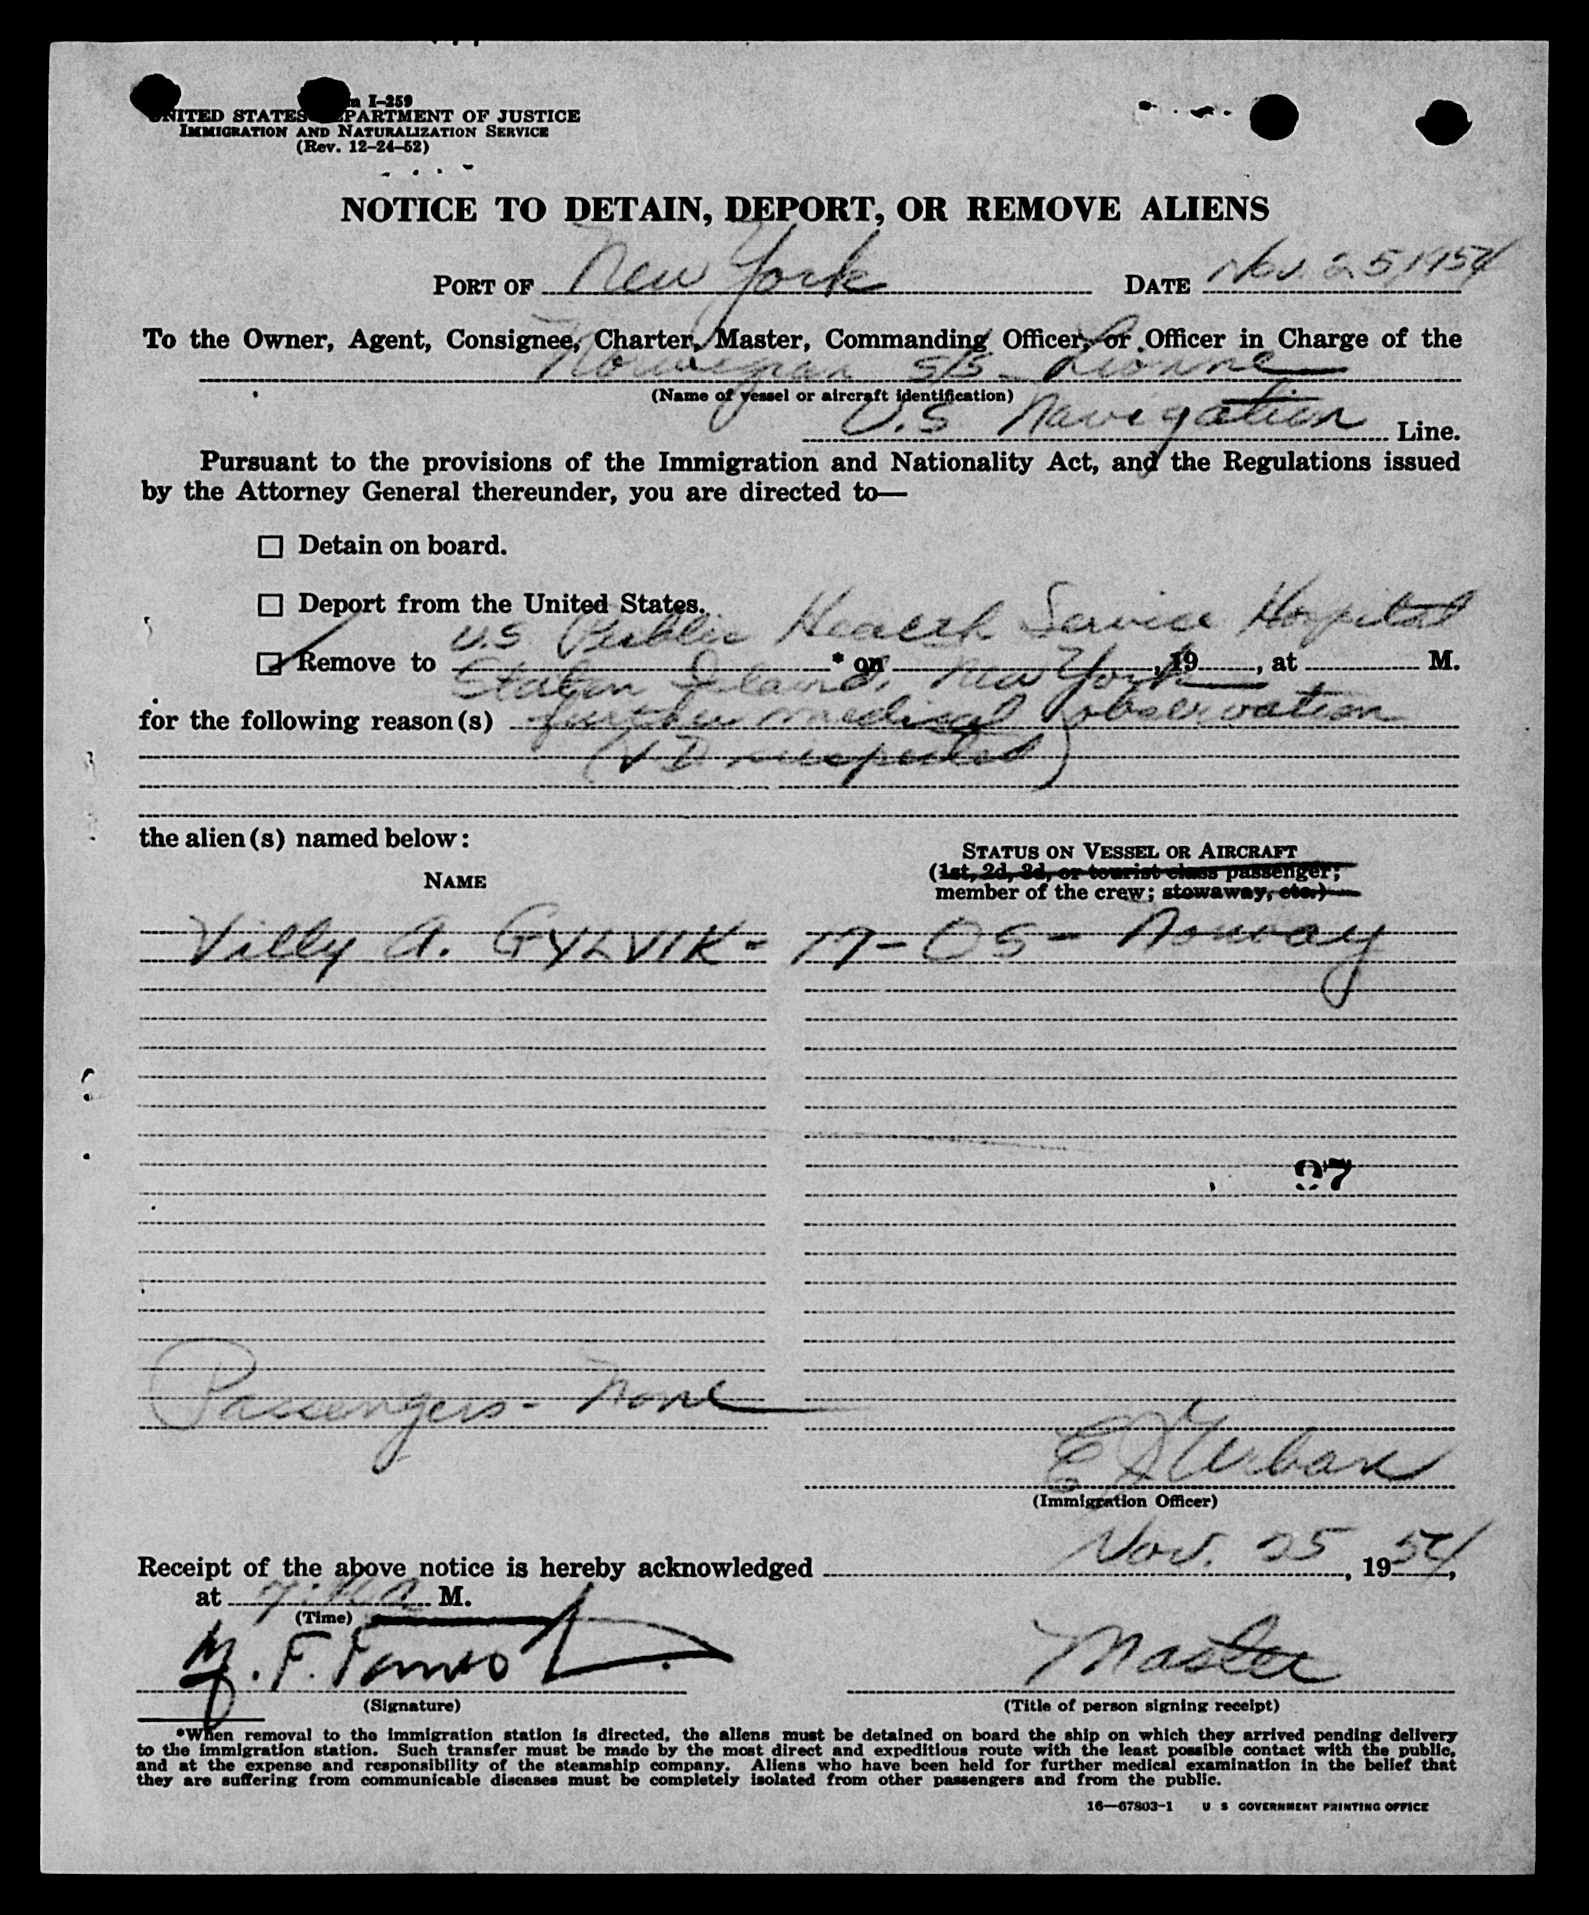 I-259
UNITED STATES DEPARTMENT OF JUSTICE
IMMIGRATION AND NATURALIZATION SERVICE
(Rev. 12-24-52)
NOTICE TO DETAIN, DEPORT, OR REMOVE ALIENS
PORT OF New York DATE Nov. 25 1954
To the Owner, Agent, Consignee, Charter, Master, Commanding Officer, or Officer in Charge of the
Norwegian S/S Lionne
(Name of vessel or aircraft identification)
U.S Navigation Line.
Pursuant to the provisions of the Immigration and Nationality Act, and the Regulations issued
by the Attorney General thereunder, you are directed to—
☐ Detain on board.
☐ Deport from the United States.
U.S. Public Health Service Hospital
☑ Remove to * on , 19 , at M.
Staten Island, New York
for the following reason(s) further medical observation
(VD suspected)
the alien(s) named below:
STATUS ON VESSEL OR AIRCRAFT
(1st, 2d, 3d, or tourist class passenger;
NAME
member of the crew; stowaway, etc.)
Villy A. GYLVIK - 17 - OS - Norway
97
Passengers - None
E Urban
(Immigration Officer)
Receipt of the above notice is hereby acknowledged Nov. 25, 1954,
at M.
(Time)
F.
Master
(Signature) (Title of person signing receipt)
*When removal to the immigration station is directed, the aliens must be detained on board the ship on which they arrived pending delivery
to the immigration station. Such transfer must be made by the most direct and expeditious route with the least possible contact with the public,
and at the expense and responsibility of the steamship company. Aliens who have been held for further medical examination in the belief that
they are suffering from communicable diseases must be completely isolated from other passengers and from the public.
16—67803-1 U S GOVERNMENT PRINTING OFFICE